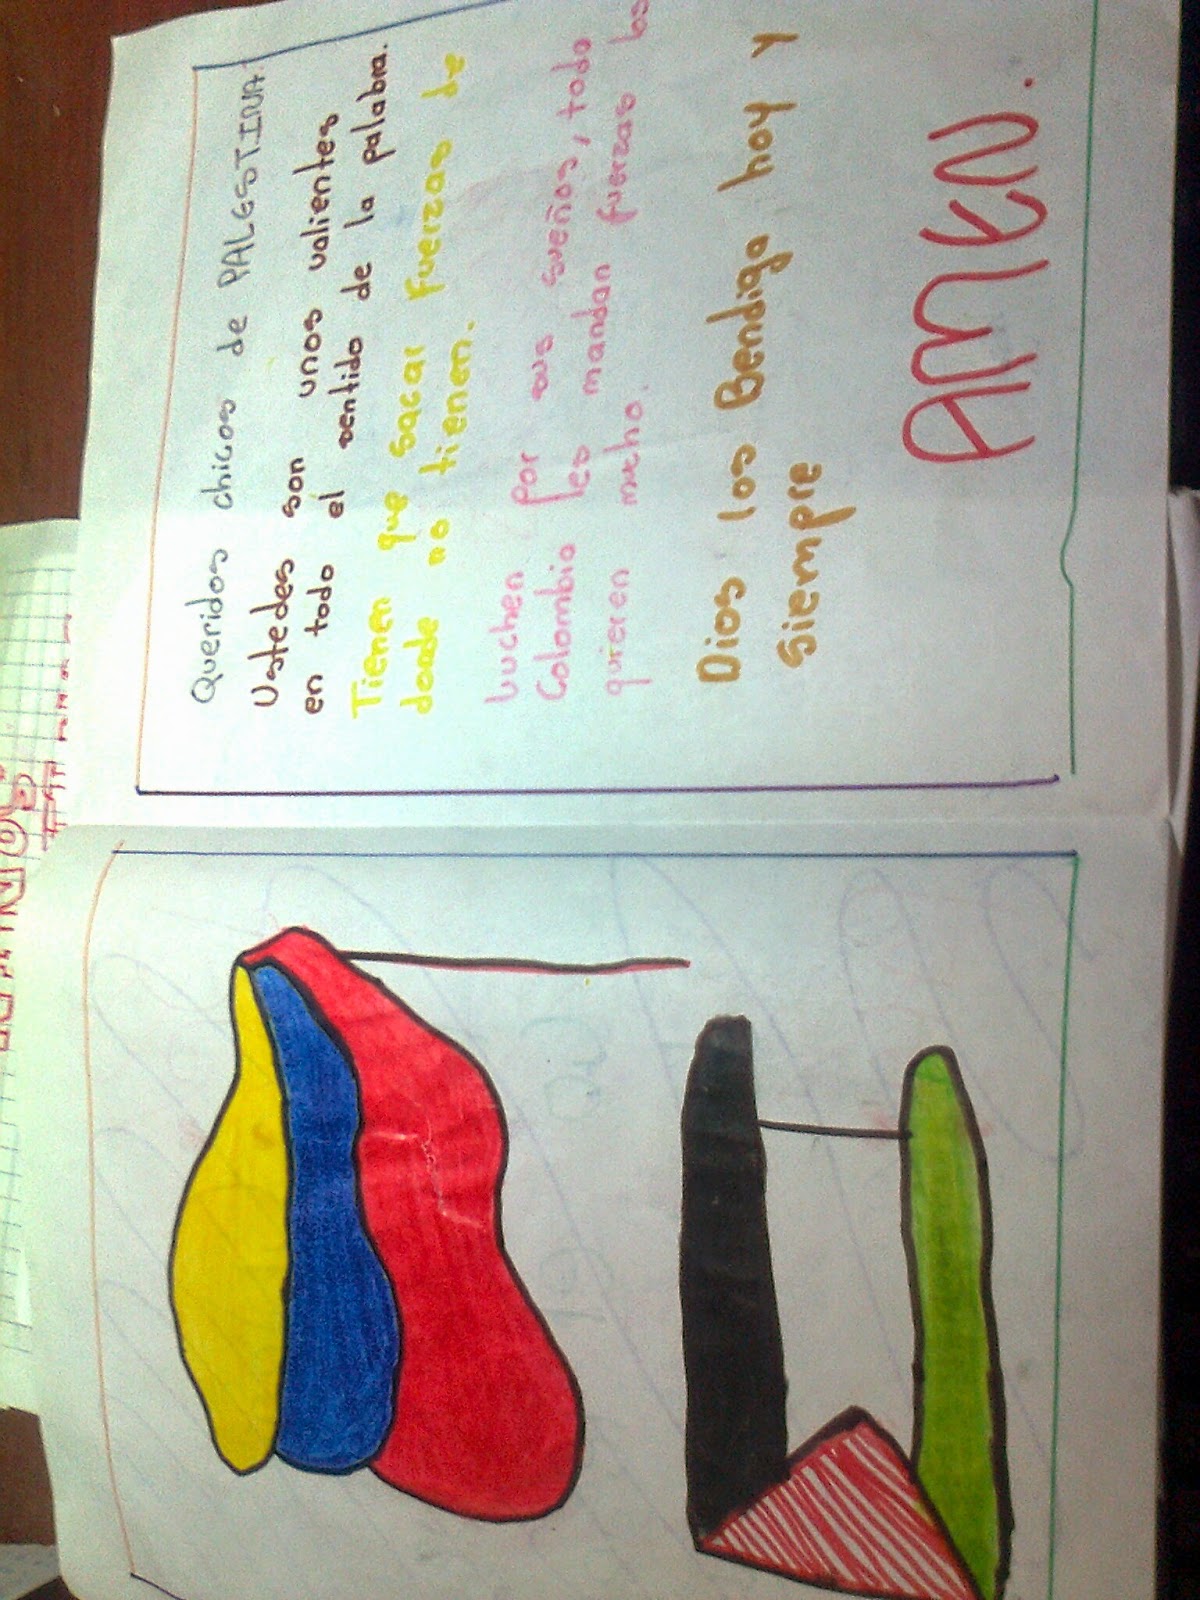 Queridos chicos de PALESTINA:
Ustedes son unos valientes
en todo el sentido de la palabra.
Tienen que sacar Fuerzas de
donde no tienen.
Luchen por sus sueños, todo
Colombia les mandan fuerzas los
quieren mucho.
Dios los Bendiga hoy y
siempre
AMEN.